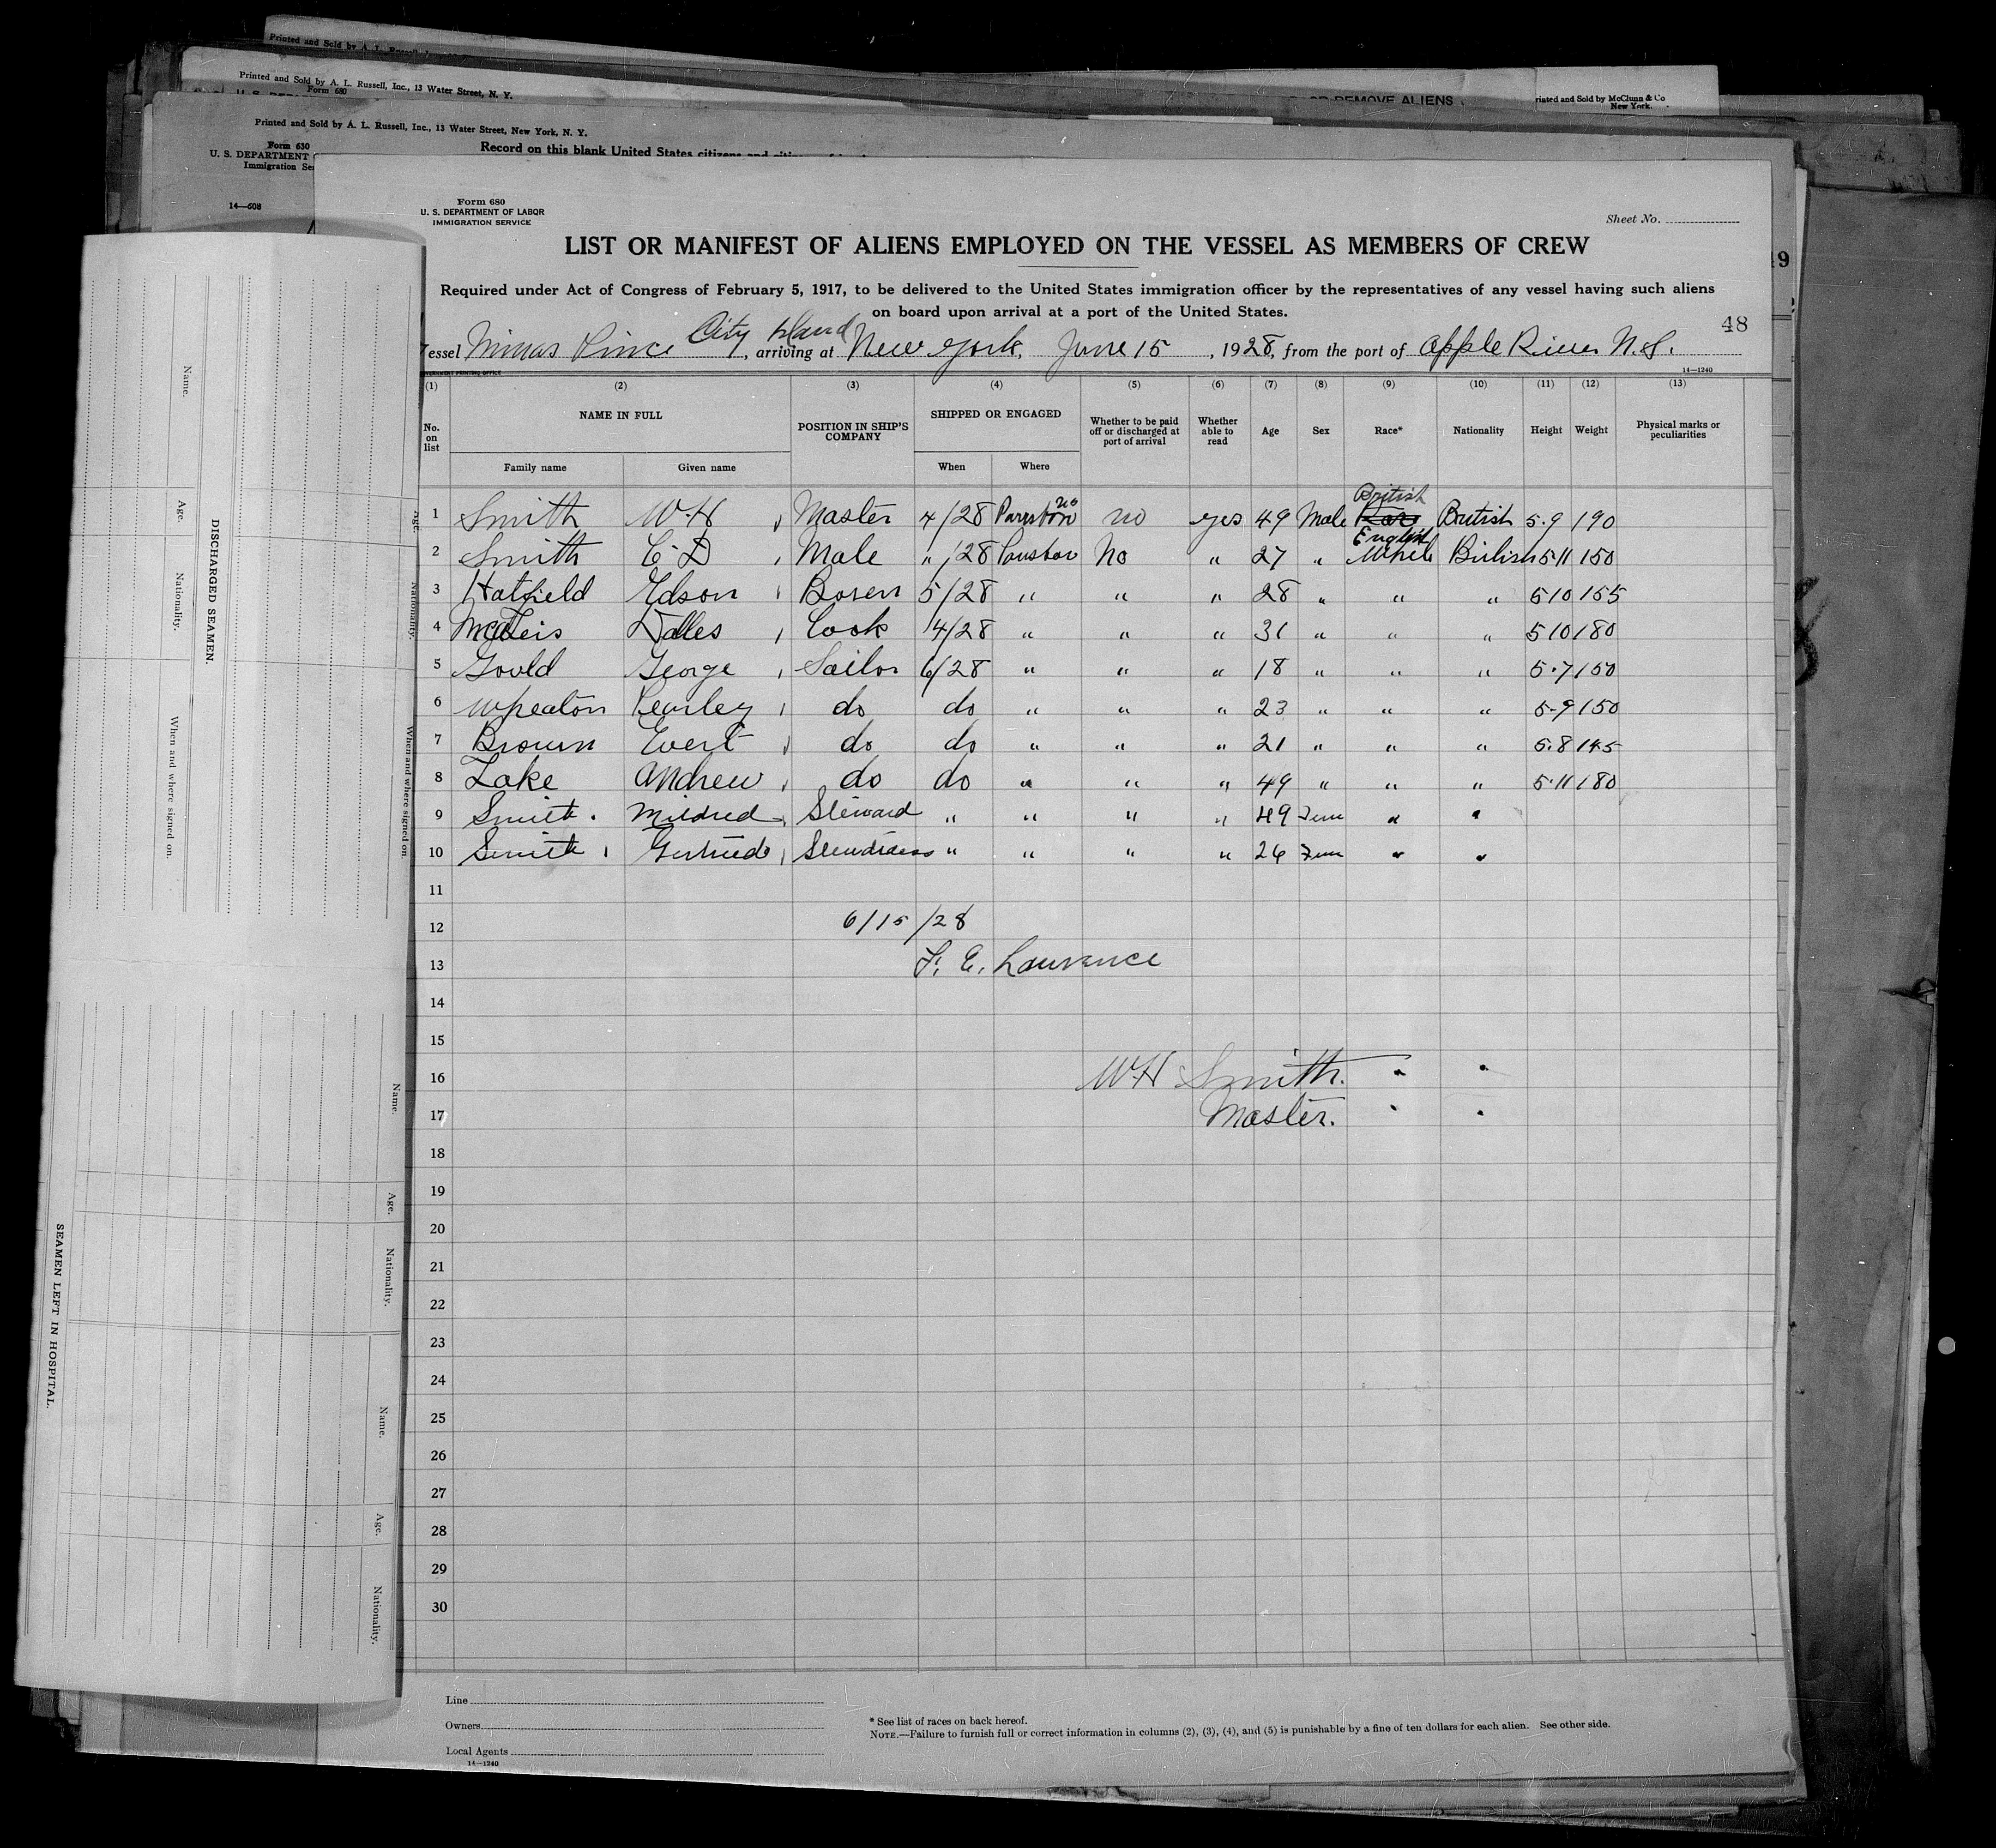 Printed and Sold by A. L. Russell, Inc.
Printed and Sold by A. L. Russell, Inc., 13 Water Street, N. Y.
Form 680
OR REMOVE ALIENS
Printed and Sold by McClunn & Co
New York.
Printed and Sold by A. L. Russell, Inc., 13 Water Street, New York, N. Y.
Form 630
U. S. DEPARTMENT
Immigration Ser
Record on this blank United States citizens and
14—608
Form 680
U. S. DEPARTMENT OF LABOR
IMMIGRATION SERVICE
Sheet No.
LIST OR MANIFEST OF ALIENS EMPLOYED ON THE VESSEL AS MEMBERS OF CREW
Required under Act of Congress of February 5, 1917, to be delivered to the United States immigration officer by the representatives of any vessel having such aliens
on board upon arrival at a port of the United States.
48
City Island
Vessel Minas Prince, arriving at New York, June 15, 1928, from the port of Apple River N.S.
14—1240
(1) (2) (3) (4) (5) (6) (7) (8) (9) (10) (11) (12) (13)
No. on list NAME IN FULL POSITION IN SHIP'S COMPANY SHIPPED OR ENGAGED Whether to be paid off or discharged at port of arrival Whether able to read Age Sex Race* Nationality Height Weight Physical marks or peculiarities
Family name Given name When Where
British
1 Smith W. H Master 4/28 Parrsboro NS no yes 49 Male British 5.9 190
English
2 Smith C. D Mate " /28 No " 27 " White British 5 11 150
3 Hatfield Edson Bosen 5/28 " " " 28 " " " 5 10 155
4 Cook 4/28 " " " 31 " " " 5 10 180
5 Gould George Sailor 6/28 " " " 18 " " " 5.7 150
6 Wheaton Pearley do do " " " 23 " " " 5.9 150
7 Brown Evert do do " " " 21 " " " 5.8 145
8 Lake Andrew do do " " " 49 " " " 5.11 180
9 Smith Mildred Steward " " " " 49 Fem " "
10 Smith Gertrude Stewardess " " " " 26 Fem " "
11
12 6/15/28
13 F. E. Lawrence
14
15
16 W H Smith. " "
17 Master. " "
18
19
20
21
22
23
24
25
26
27
28
29
30
Line
Owners
Local Agents
14—1240
* See list of races on back hereof.
NOTE.—Failure to furnish full or correct information in columns (2), (3), (4), and (5) is punishable by a fine of ten dollars for each alien. See other side.
DISCHARGED SEAMEN.
Name. Age. Nationality. When and where signed on.
Age. Nationality. When and where signed on.
SEAMEN LEFT IN HOSPITAL.
Name. Age. Nationality.
Name. Age. Nationality.